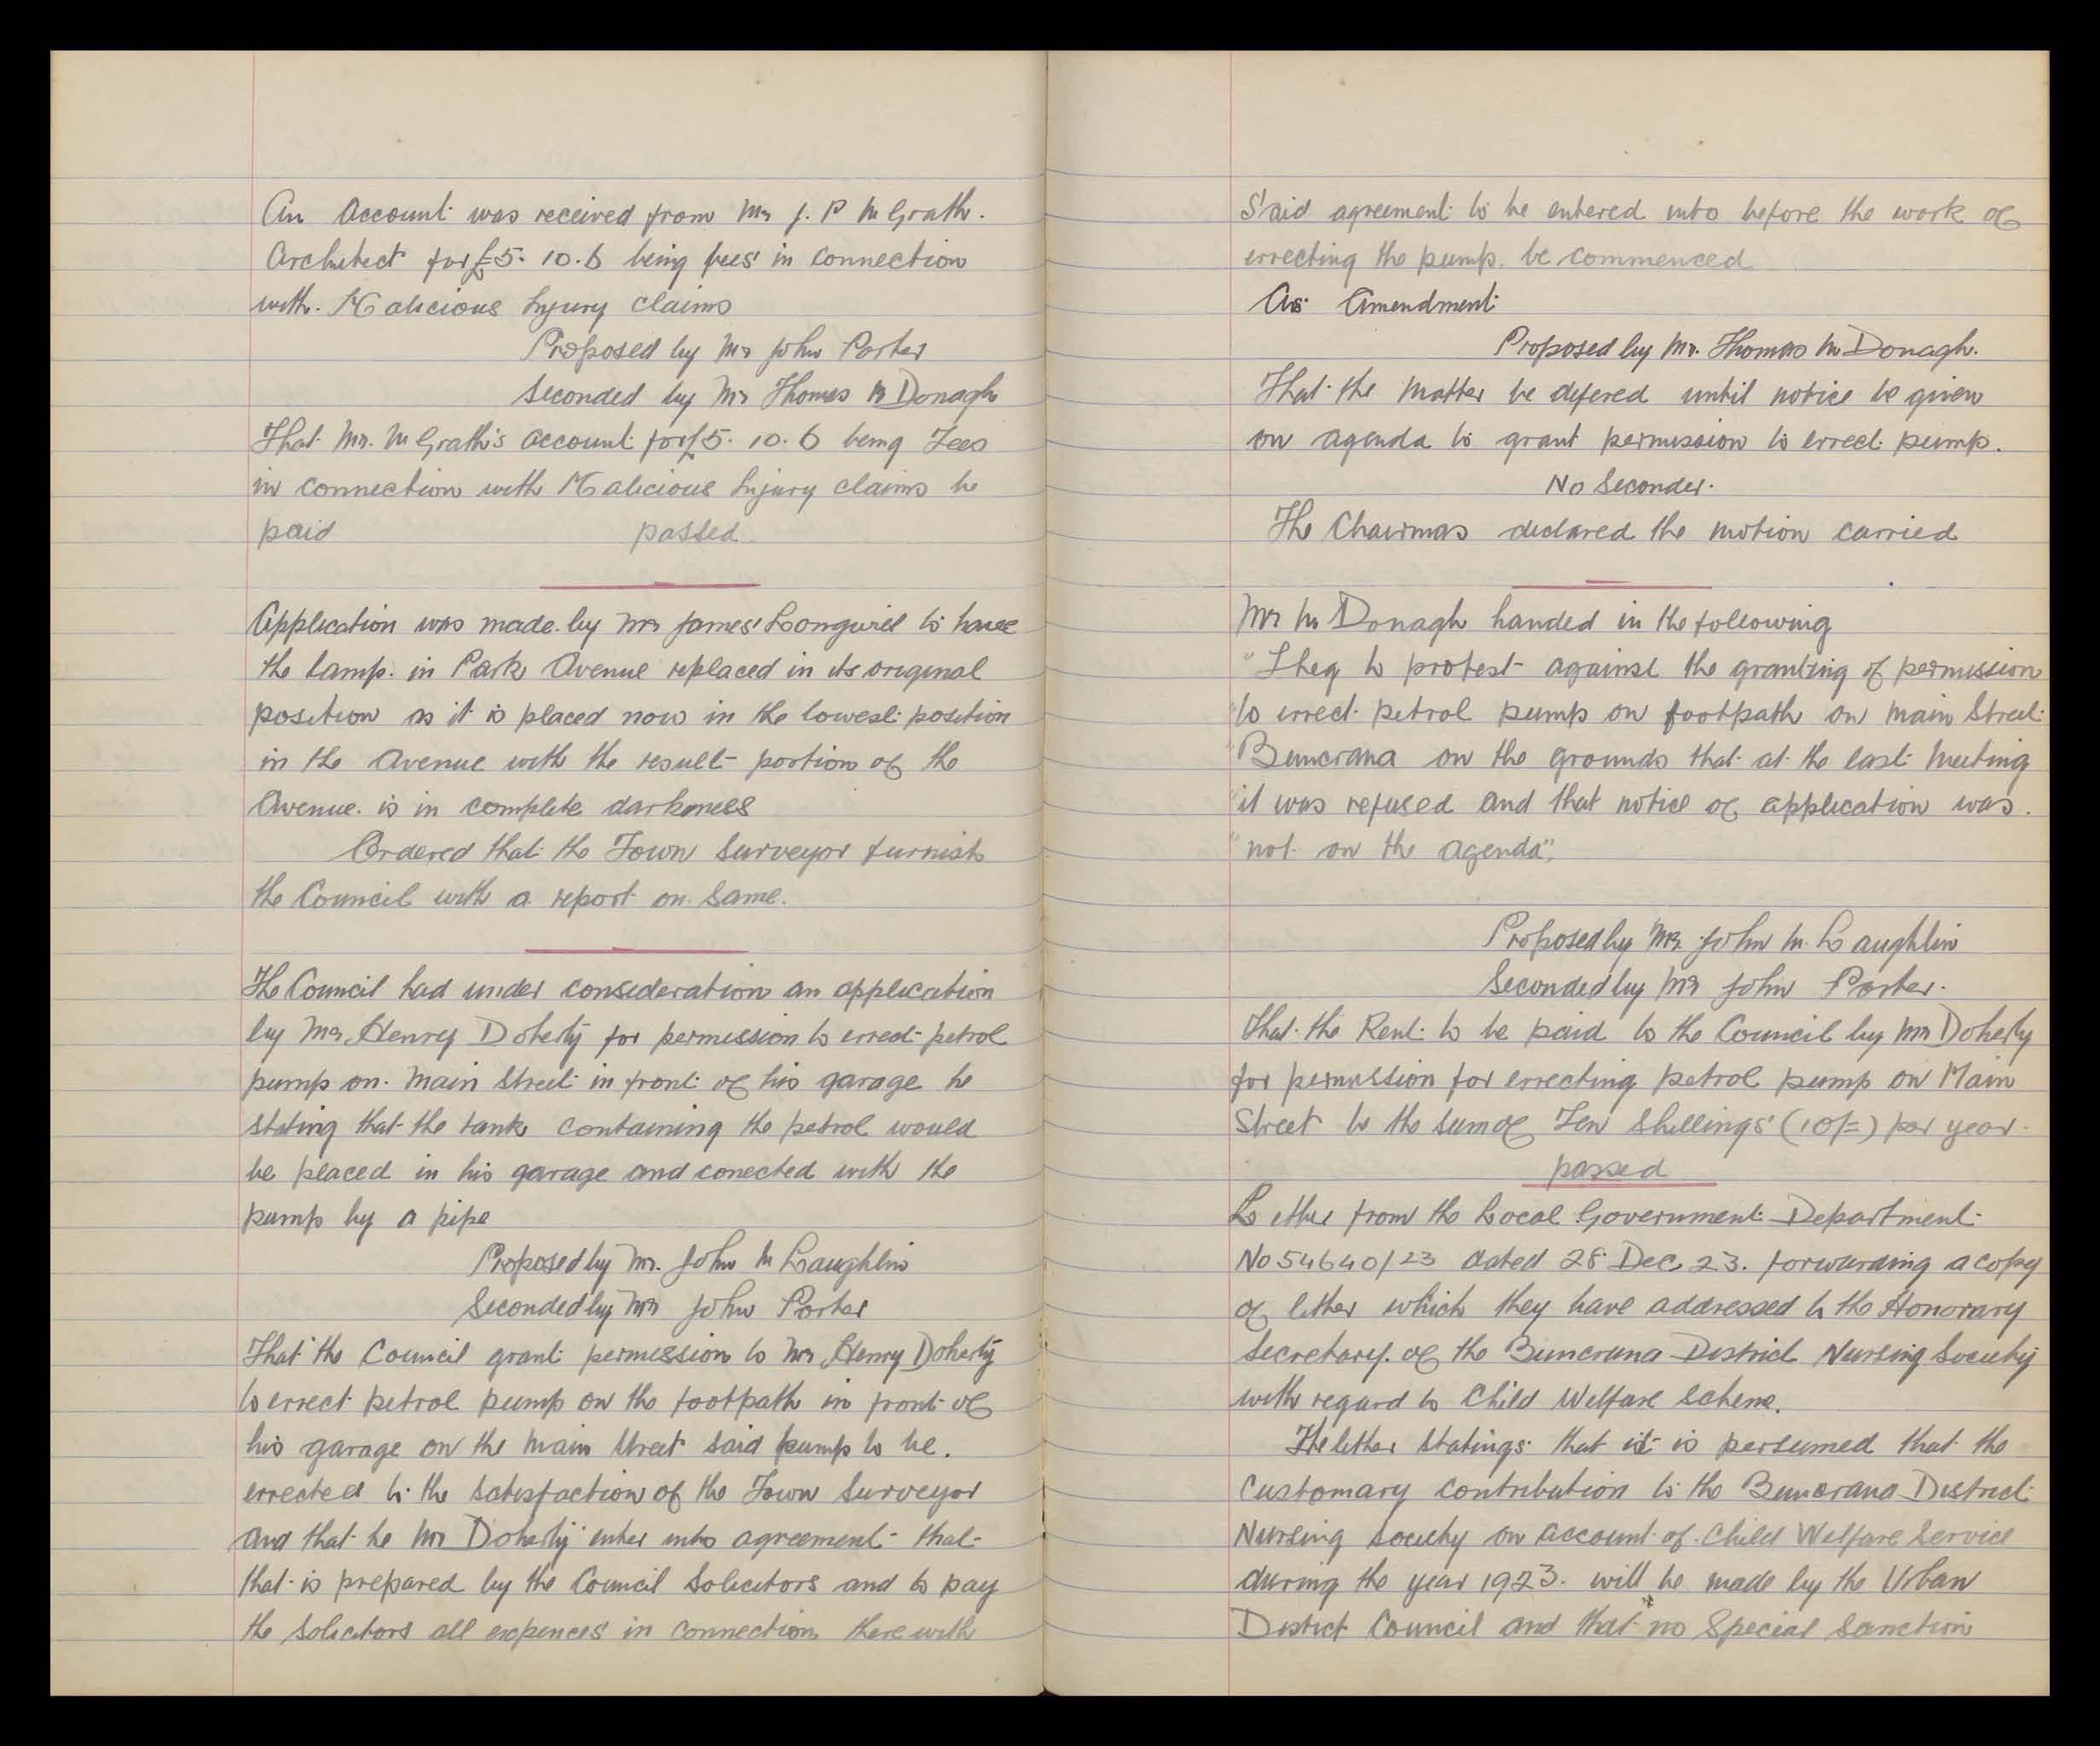 An Account was received from Mr J. P McGrath.
Architect for £5. 10. 6 being fees in Connection
with. Malicious Injury Claims
Proposed by Mr John Porter
Seconded by Mr Thomas McDonagh
That Mr. McGrath's account for £5. 10. 6 being Fees
in connection with Malicious Injury claims be
paid passed.
Application was made by Mr James Longwill to have
the lamp. in Park Avenue replaced in its original
position as it is placed now in the lowest position
in the Avenue with the result portion of the
Avenue. is in complete darkness
Ordered that the Town Surveyor furnish
the Council with a report on Same.
The Council had under consideration an application
by Mr Henry Doherty for permission to errect petrol
pump on. Main Street in front of his garage he
stating that the tank containing the petrol would
be placed in his garage and conected with the
pump by a pipe
Proposed by Mr. John McLaughlin
Seconded by Mr John Porter
That the Council grant permission to Mr Henry Doherty
to errect petrol pump on the footpath in front of
his garage on the Main Street said pump to be.
errected to the satisfaction of the Town Surveyor
and that he Mr Doherty enter into agreement that
that is prepared by the Council Solicitors and to pay
the Solicitors all expences in Connection there with
Said agreement to be entered into before the work of
errecting the pump. be commenced
As Amendment
Proposed by Mr. Thomas McDonagh.
That the Matter be defered until notice be given
on agenda to grant permission to errect pump.
No Seconder.
The Chairman declared the motion carried
Mr McDonagh handed in the following
"I beg to protest against the granting of permission
"to errect petrol pump on footpath on Main Street
"Buncrana on the grounds that at the last Meeting
"it was refused and that notice of application was.
"not on the agenda".
Proposed by Mr. John McLaughlin
Seconded by Mr John Porter.
That the Rent to be paid to the Council by Mr Doherty
for permission for errecting petrol pump on Main
Street to the sum of Ten Shellings (10/=) per year.
passed
Letter from the Local Government Department
No 54640/23 dated 28 Dec. 23. forwarding a copy
of letter which they have addressed to the Honorary
Secretary. of the Buncrana District Nursing Society
with regard to Child Welfare Scheme.
The letter statings that it is persumed that the
Customary contribution to the Buncrana District
Nursing Society on account of Child Welfare Service
during the year 1923. will be made by the Urban
District Council and that no Special Sanction